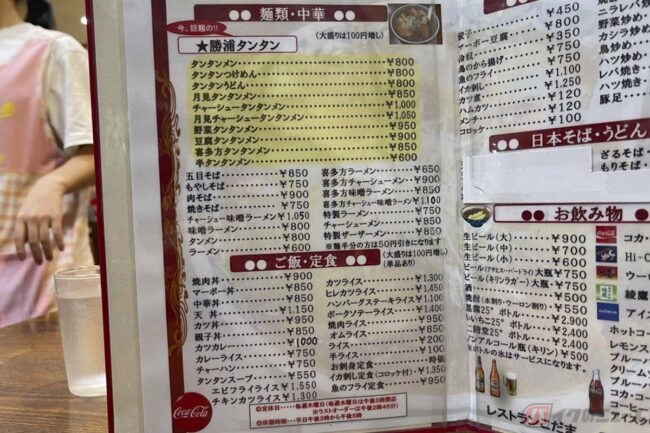 麺類・中華
今、話題の!!
(大盛りは100円増し)
★勝浦タンタン
タンタンメン ¥800
タンタンつけめん ¥900
タンタンうどん ¥800
月見タンタンメン ¥850
チャーシュータンタンメン ¥1,000
月見チャーシュータンタンメン ¥1,050
野菜タンタンメン ¥950
豆腐タンタンメン ¥900
喜多方タンタンメン ¥850
半タンタンメン ¥600
五目そば ¥850
もやしそば ¥750
肉そば ¥900
焼きそば ¥750
チャーシュー味噌ラーメン ¥1,050
味噌ラーメン ¥800
タンメン ¥800
ラーメン ¥600
喜多方ラーメン ¥650
喜多方チャーシューメン ¥950
喜多方味噌ラーメン ¥850
喜多方チャーシュー味噌ラーメン ¥1,100
特製ラーメン ¥750
チャーシューメン ¥850
特製ザーザーメン ¥850
※麺半分の方は50円引きになります
ご飯・定食
(大盛りは100円増し)
(単品あり)
焼肉丼 ¥900
マーボー丼 ¥850
中華丼 ¥850
天丼 ¥1,150
カツ丼 ¥950
親子丼 ¥850
カツカレー ¥1000
カレーライス ¥750
チャーハン ¥750
タンタンスープ ¥550
エビフライライス ¥1,550
チキンカツライス ¥1,300
カツライス ¥1,300
ヒレカツライス ¥1,450
ハンバーグステーキライス ¥1,100
ポークソテーライス ¥1,400
焼肉ライス ¥950
オムライス ¥850
ライス ¥200
半ライス ¥100
お刺身定食 時価
イカ刺し定食(コロッケ付) ¥1,350
魚のフライ定食 ¥950
◎定休日・・・毎週木曜日(毎週水曜日は午後3時閉店
※ラストオーダーは午後2時45分)
◎休憩時間・・・平日午後3時から午後5時
Coca-Cola
餃子 ¥450
マーボー豆腐 ¥750
冷奴
鳥のから揚げ ¥750
魚のフライ ¥750
イカ刺し
カツ煮
ハムカツ ¥120
メンチ ¥120
コロッケ ¥100
ニラレバ炒め
野菜炒め
カシラ炒め
鳥炒め
ハツ炒め
レバ焼き
ハツ焼き
豚足
日本そば・うどん
ざるそば
もりそば
お飲み物
生ビール(大) ¥900
生ビール(中) ¥700
生ビール(小) ¥500
ビール(アサヒスーパードライ)大瓶 ¥750
ビール(キリンラガー)大瓶 ¥750
酒 ¥500
焼酎(水割り・ウーロン割り) ¥550
黒霧25°ボトル ¥2,400
いいちこ25°ボトル ¥2,400
二階堂25°ボトル ¥2,900
ノンアルコール瓶(キリン) ¥500
※ボトルの氷はサービスになります。
コカ・
Hi-C
ウー
綾鷹
アイス
ホットコー
レモンス
ブルーハ
クリーム
ブルーハ
コーヒー
アイスク
レストランこだま